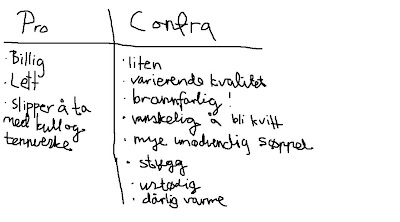 Pro
Contra
· Billig
· Lett
· Slipper å ta
med kull og
tennveske
· liten
· varierende kvalitet
· brannfarlig!
· vanskelig å bli kvitt
· mye unødvendig søppel
· stygg
· ustødig
· dårlig varme